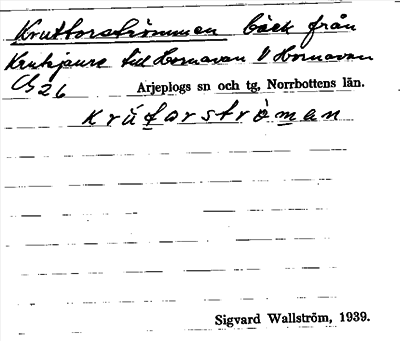 Kruttorströmmen bäck från
Krutjaure till Hornavan V Hornavan
26
Arjeplogs sn och tg, Norrbottens län.
krútarstrò̀man
Sigvard Wallström, 1939.